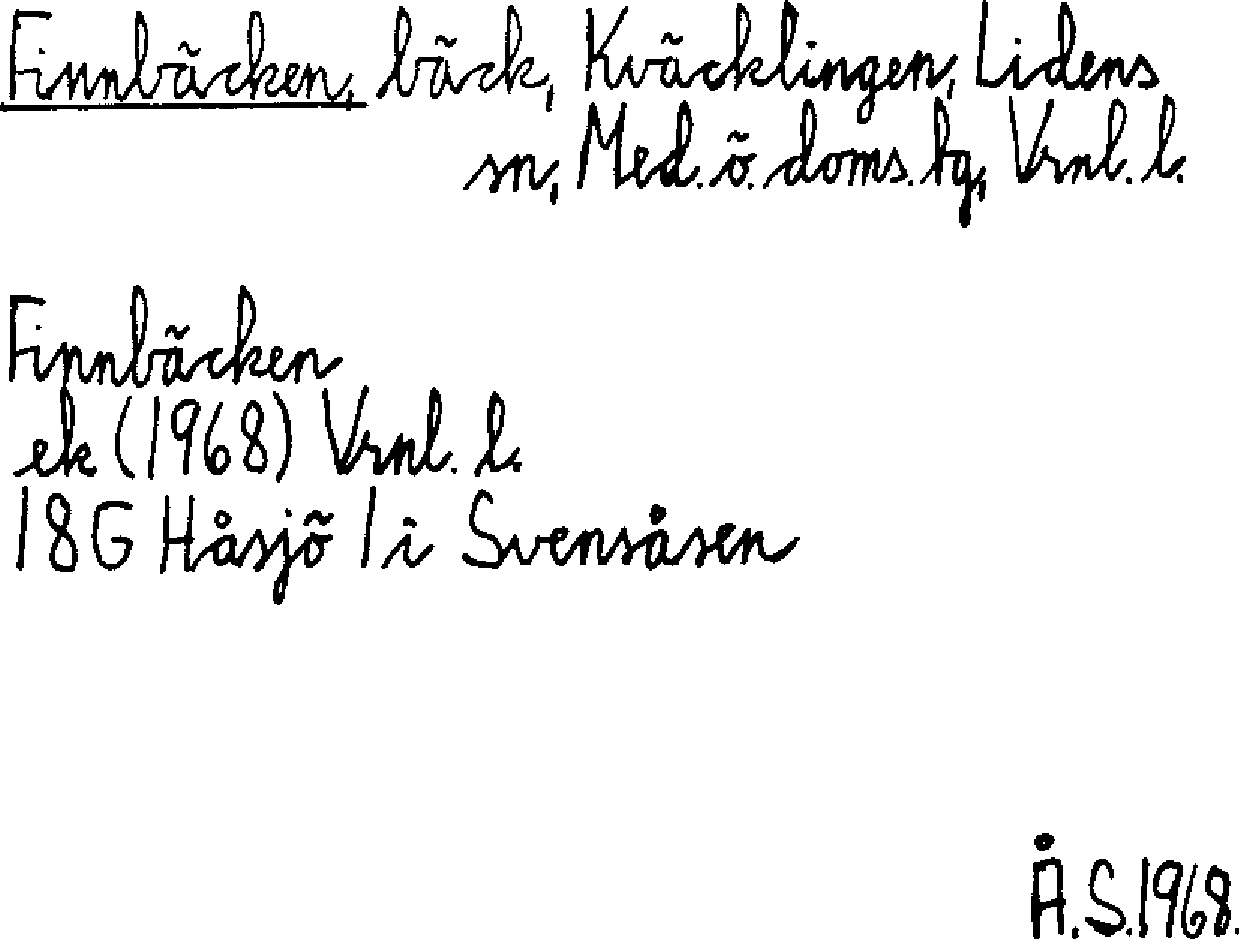 Finnbäcken, bäck, Kväcklingen, Lidens
sn, Med. ö. doms. tg, Vrnl. l.
Finnbäcken
ek (1968) Vrnl. l.
18G Håsjö 1 i Svensåsen
Å.S. 1968.